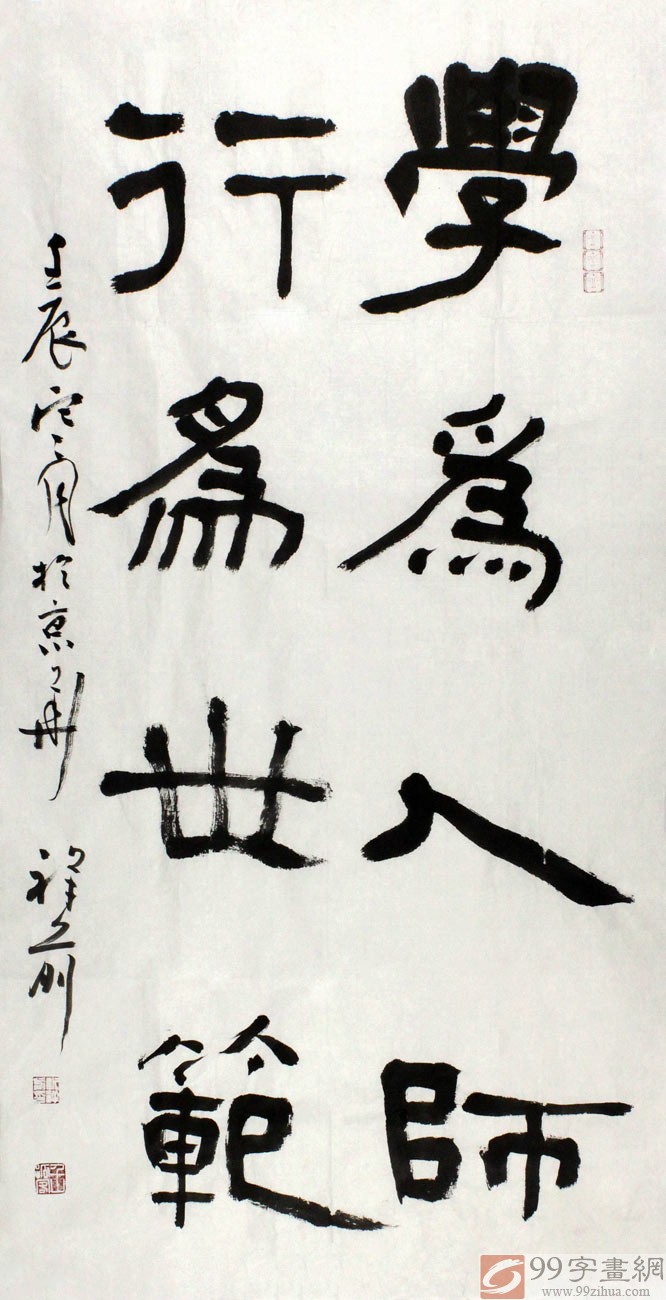 學爲人師
行爲世範
壬辰
月於京華
99字畫網
www.99zihua.com